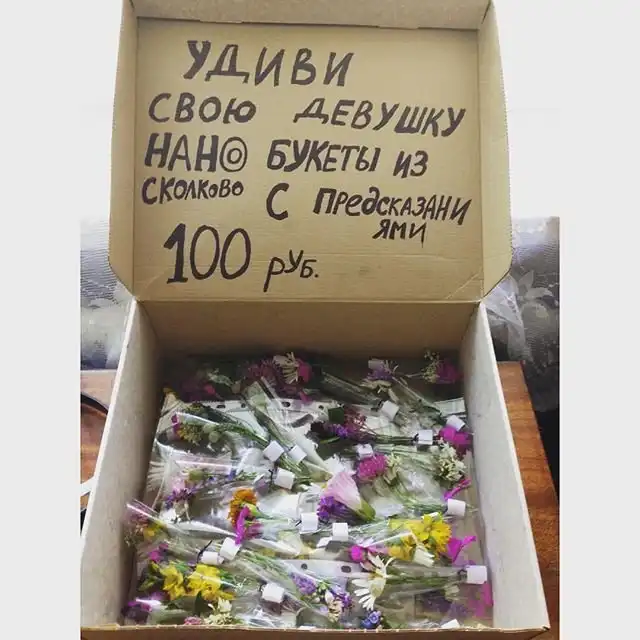 УДИВИ
СВОЮ ДЕВУШКУ
НАНО БУКЕТЫ ИЗ
СКОЛКОВО С ПРЕДСКАЗАНИ
ЯМИ
100 РУБ.